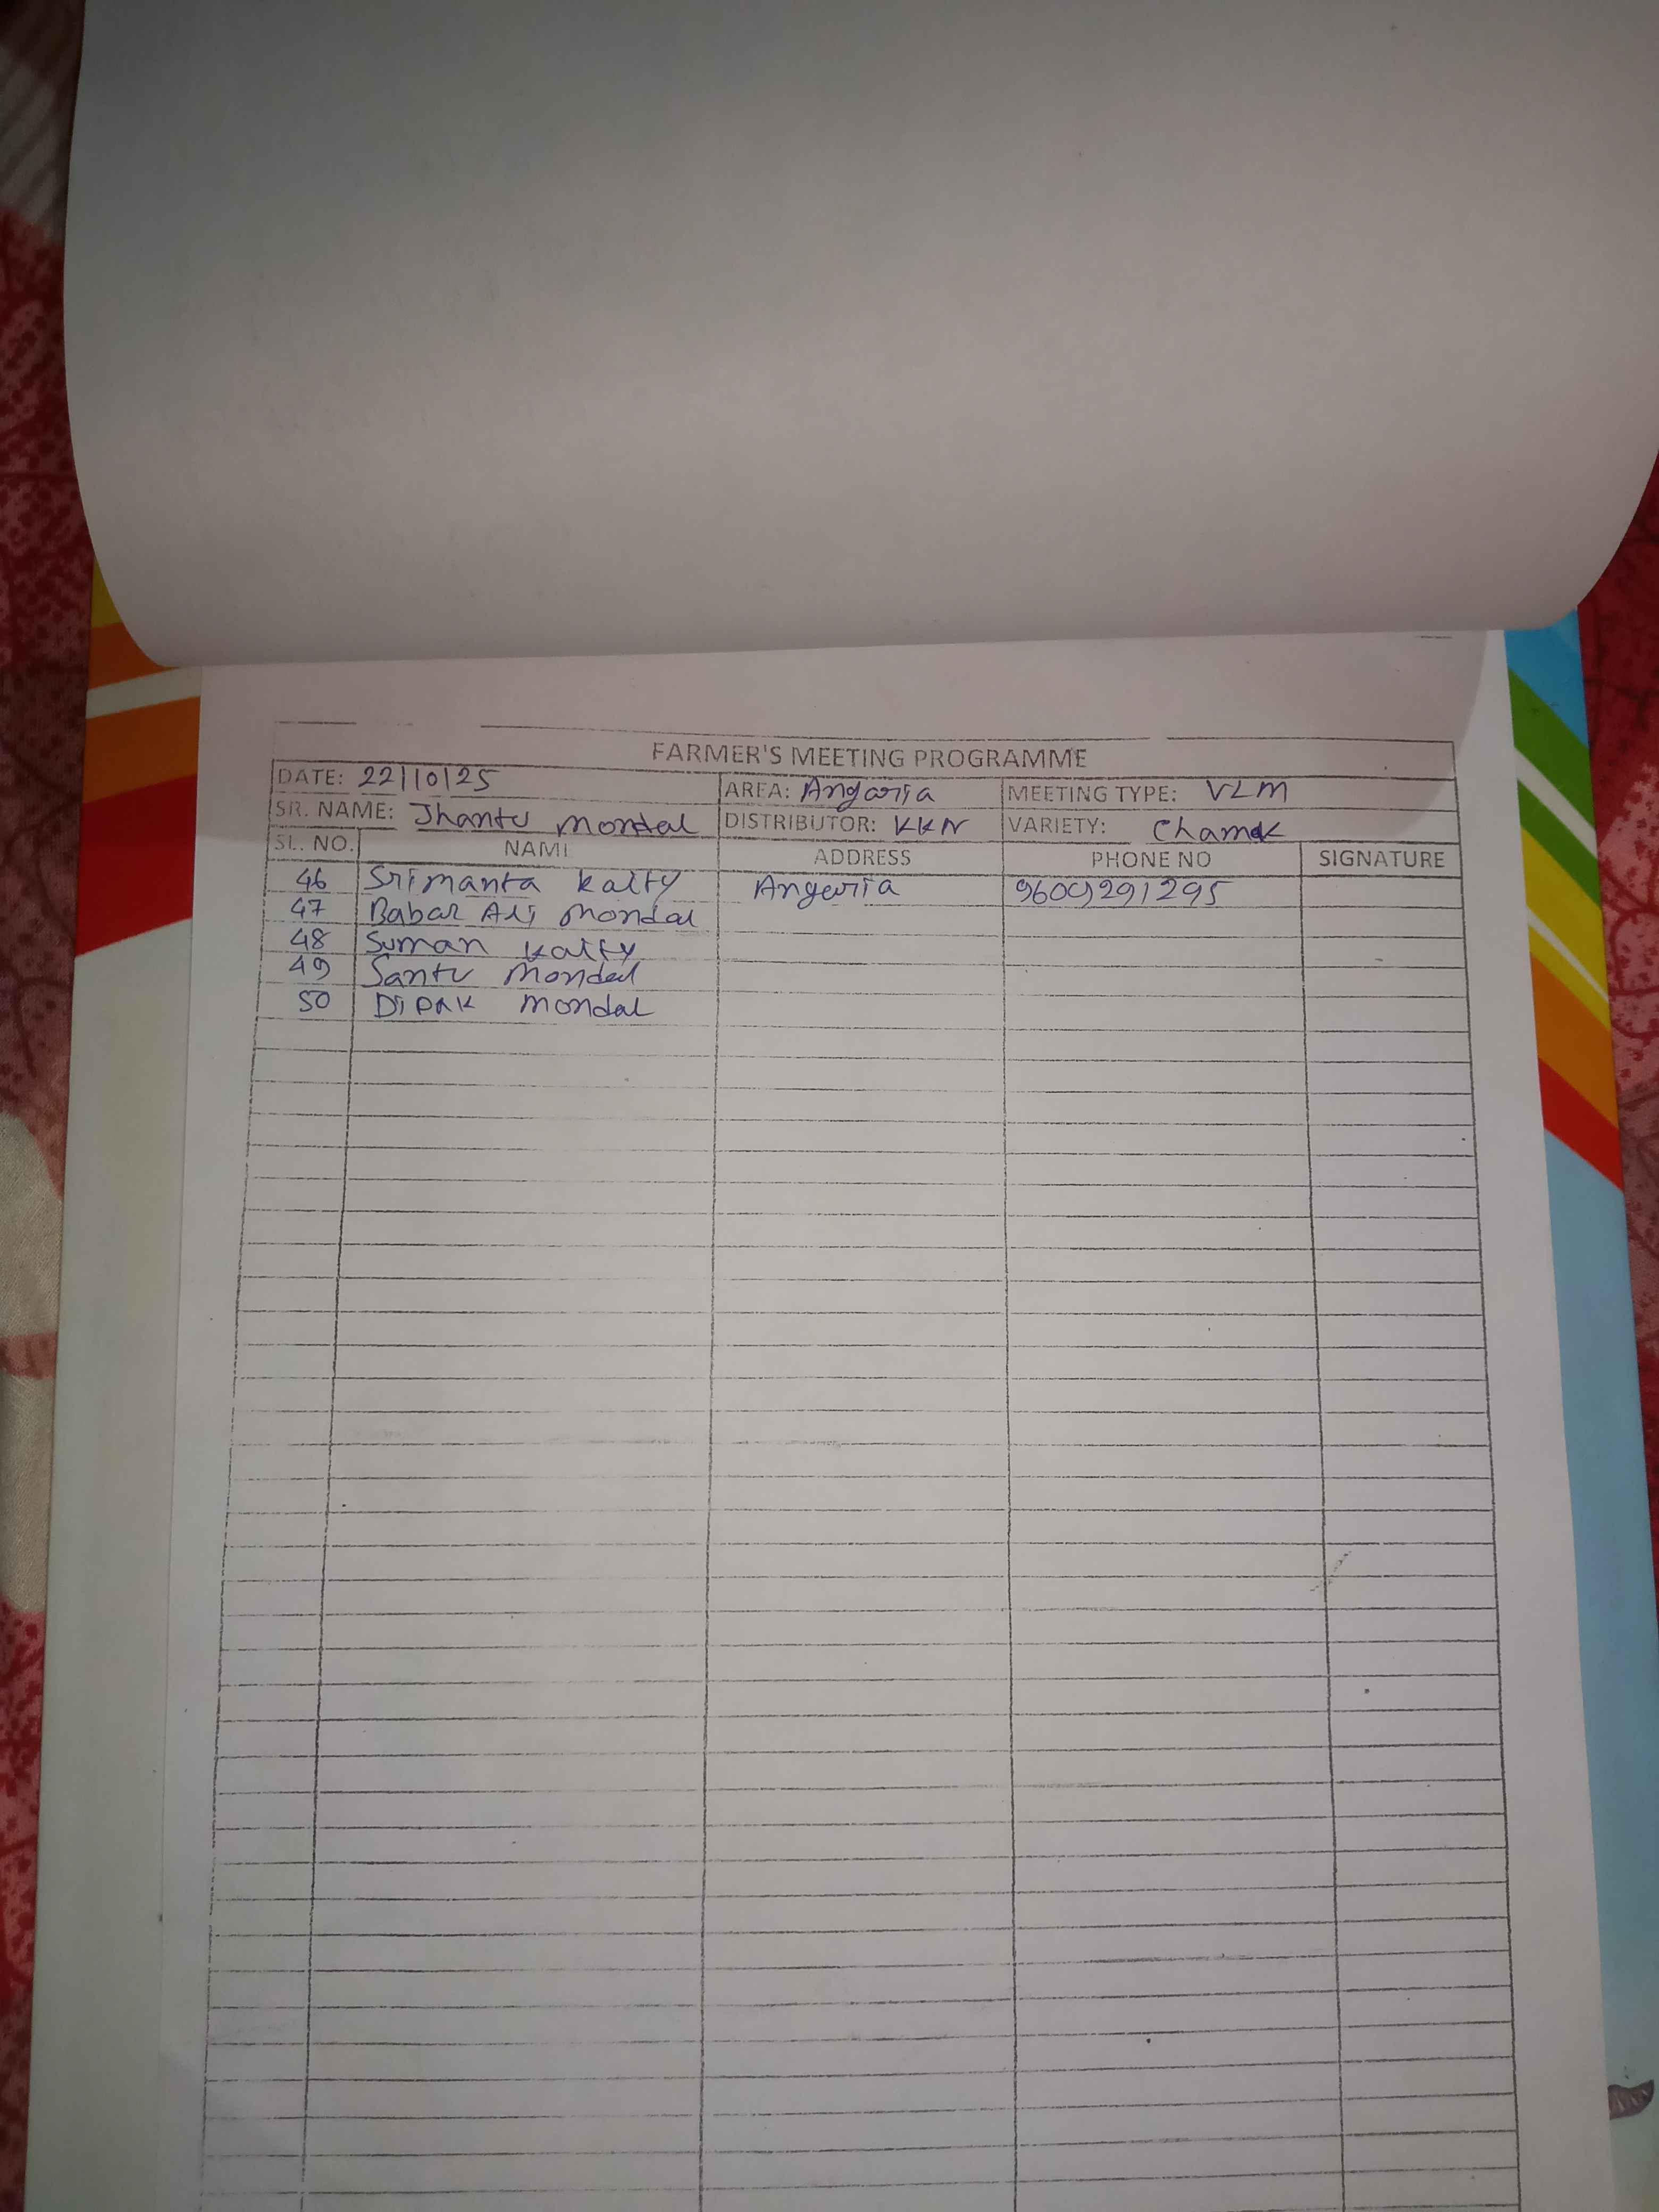 FARMER'S MEETING PROGRAMME
DATE: 22/10/25 AREA: Angaria MEETING TYPE: VLM
SR. NAME: Jhantu Mondal DISTRIBUTOR: KKN VARIETY: Chamak
SL. NO. NAME ADDRESS PHONE NO SIGNATURE
46 Srimanta Kalty Angaria 9609291295
47 Babar Ali Mondal
48 Suman Kalty
49 Santu Mondal
50 Dipak Mondal